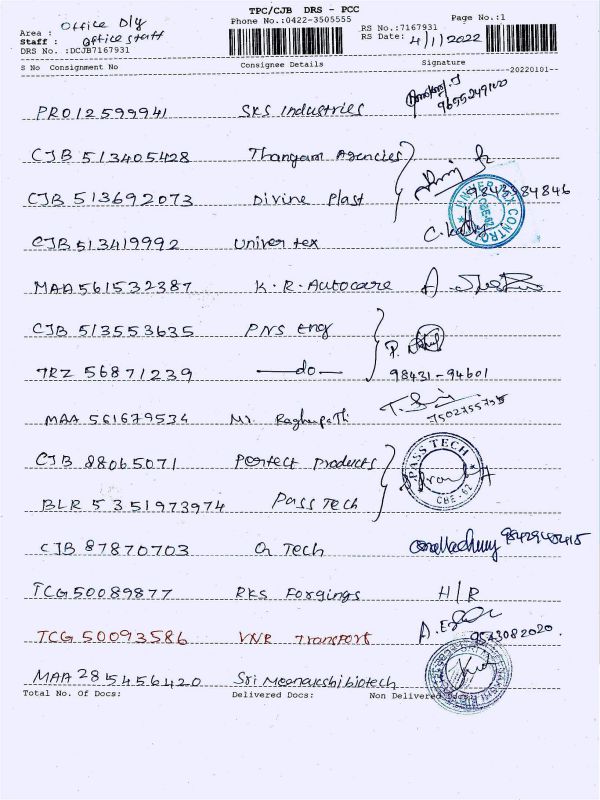 TPC/CJB DRS - PCC
Phone No.:0422-3505555
Page No.:1
Area : Office Dly
Staff : Office Staff
DRS No. :DCJB7167931
RS No.:7167931
RS Date: 4/1/2022
S No Consignment No Consignee Details Signature
20220101
PRO12599941 SKS Industries 9655249100
CJB 513405428 Thangam Agencies
CJB 513692073 Divine Plast 9843984846
CJB 513419992 Univer tex C.
MAA 561532387 K.R. Autocare A.
CJB 513553635 PNS Eng P.
TRZ 56871239 —do— 98431-94601
MAA 561679534 Mr. Raghupathi T.
CJB 88065071 Pertect Products
PASS TECH
CBE-62
BLR 5351973974 Pass Tech
CJB 87870703 Tech
TCG50089877 RKS Forgings H/R
TCG 50093586 VNR Transport A. 9543082020.
MAA 2815456420 Sri Meenakshi biotech
Total No. Of Docs: Delivered Docs: Non Delivered